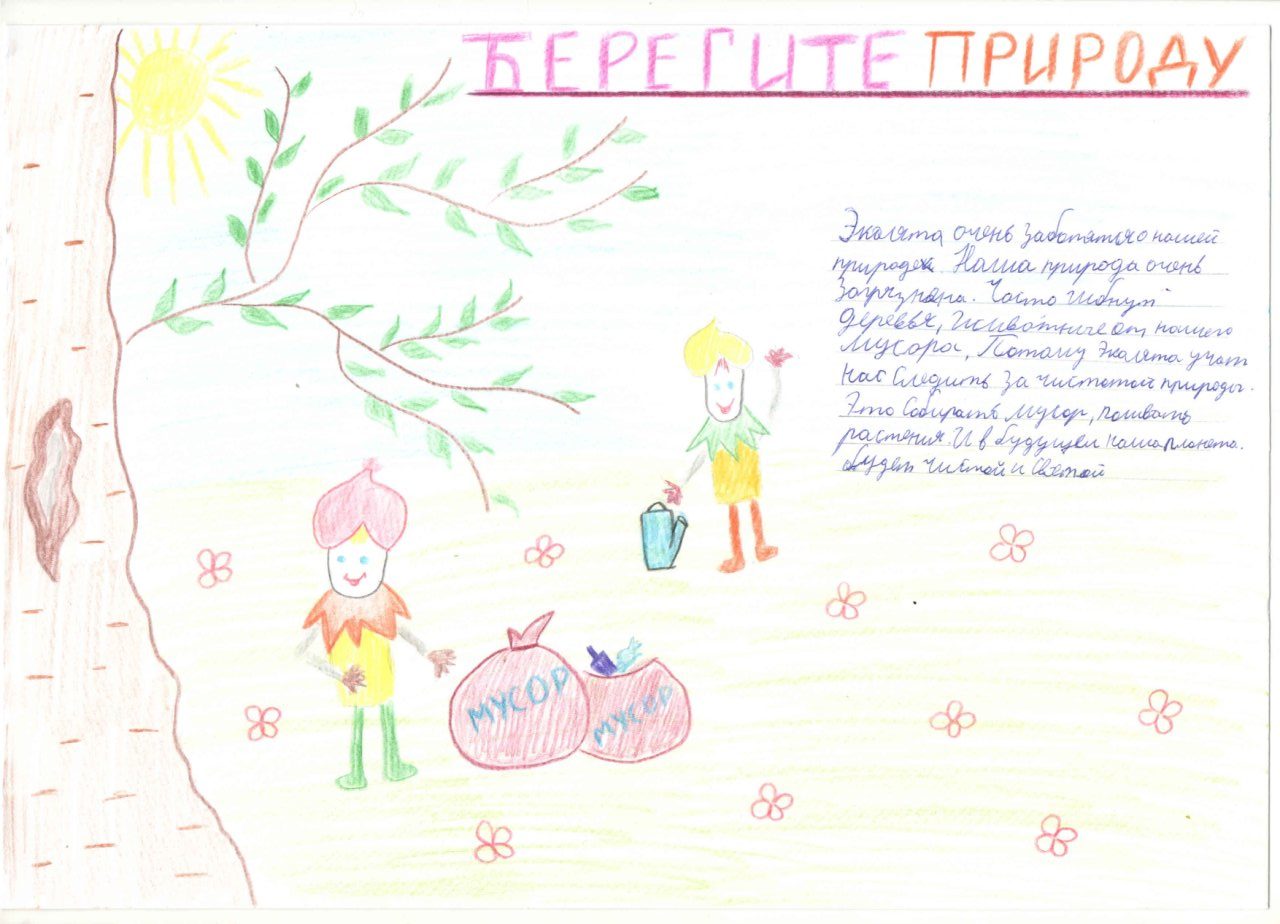 БЕРЕГИТЕ ПРИРОДУ
Эколята очень заботятся о нашей
природе. Наша природа очень
загрязнена. Часто гибнут
деревья, животные от нашего
мусора, Потому Эколята учат
нас следить за чистотой природы.
Это собирать мусор, поливать
растения. И в будущем наша планета.
будет чистой и светой
МУСОР
МУСОР